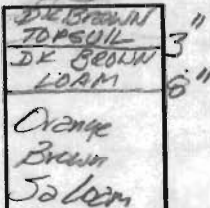 DK BROWN
TOPSOIL 3"
DK BROWN
LOAM 8"
Orange
Brown
Sa Loam